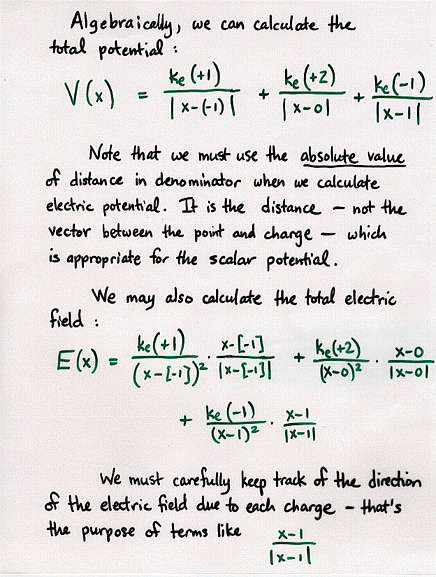 Algebraically, we can calculate the
total potential :
V(x) = ke(+1) / |x-(-1)| + ke(+2) / |x-0| + ke(-1) / |x-1|
Note that we must use the absolute value
of distance in denominator when we calculate
electric potential. It is the distance - not the
vector between the point and charge - which
is appropriate for the scalar potential.
We may also calculate the total electric
field :
E(x) = ke(+1) / (x-[-1])² · x-[-1] / |x-[-1]| + ke(+2) / (x-0)² · x-0 / |x-0|
+ ke(-1) / (x-1)² · x-1 / |x-1|
We must carefully keep track of the direction
of the electric field due to each charge - that's
the purpose of terms like x-1 / |x-1|